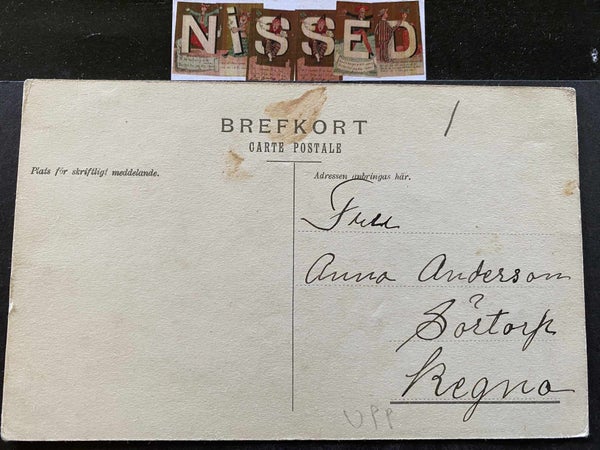 NiSSED
BREFKORT
CARTE POSTALE
Plats för skriftligt meddelande.
Adressen anbringas här.
/
Fru
Anna Anderson
Sörtorp
Regna
UPP